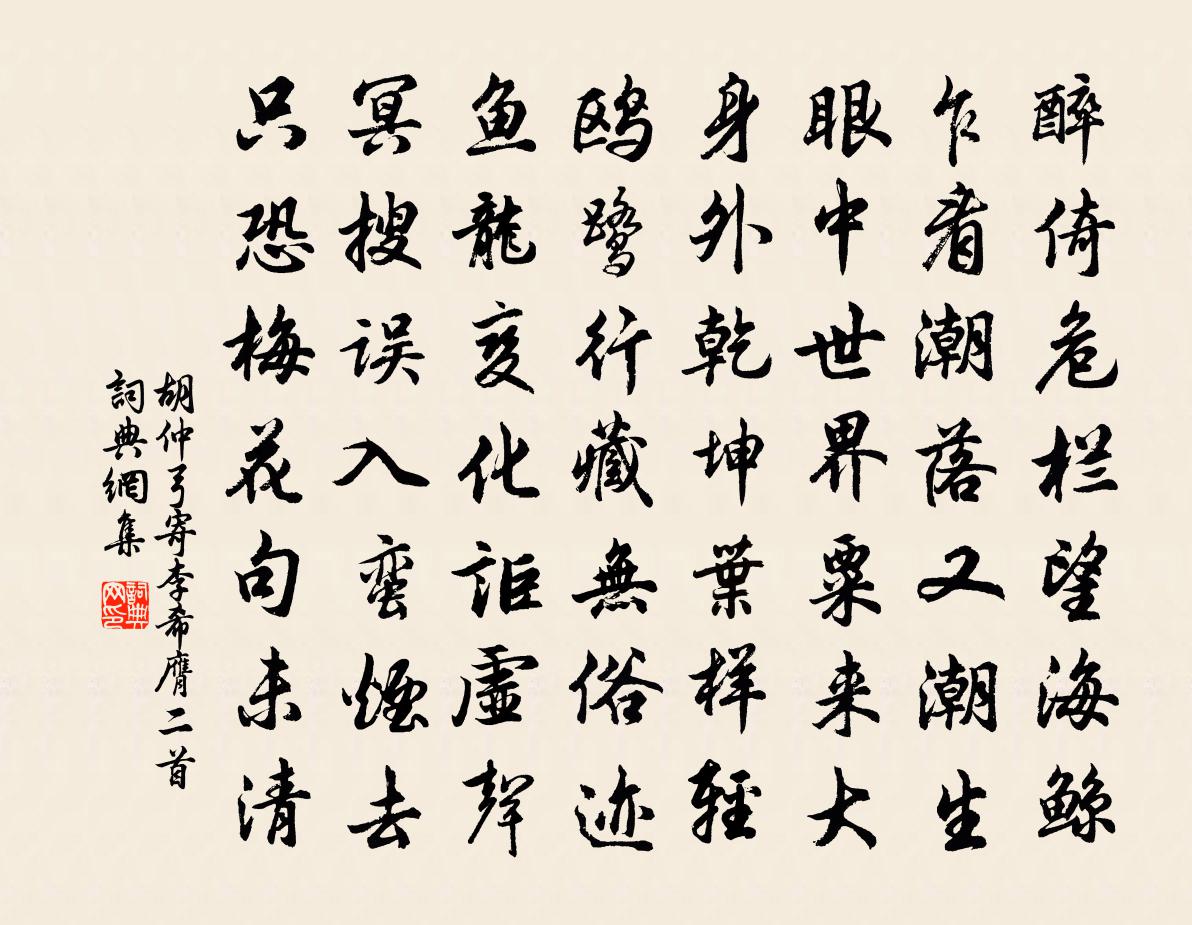 醉倚危栏望海鲸
乍看潮落又潮生
眼中世界粟来大
身外乾坤葉样輕
鸥鹭行藏無俗迹
鱼龍变化詎虛聲
冥搜误入蛮煙去
只恐梅花句未清
胡仲弓寄李希膺二首
詞典網集
詞典网印